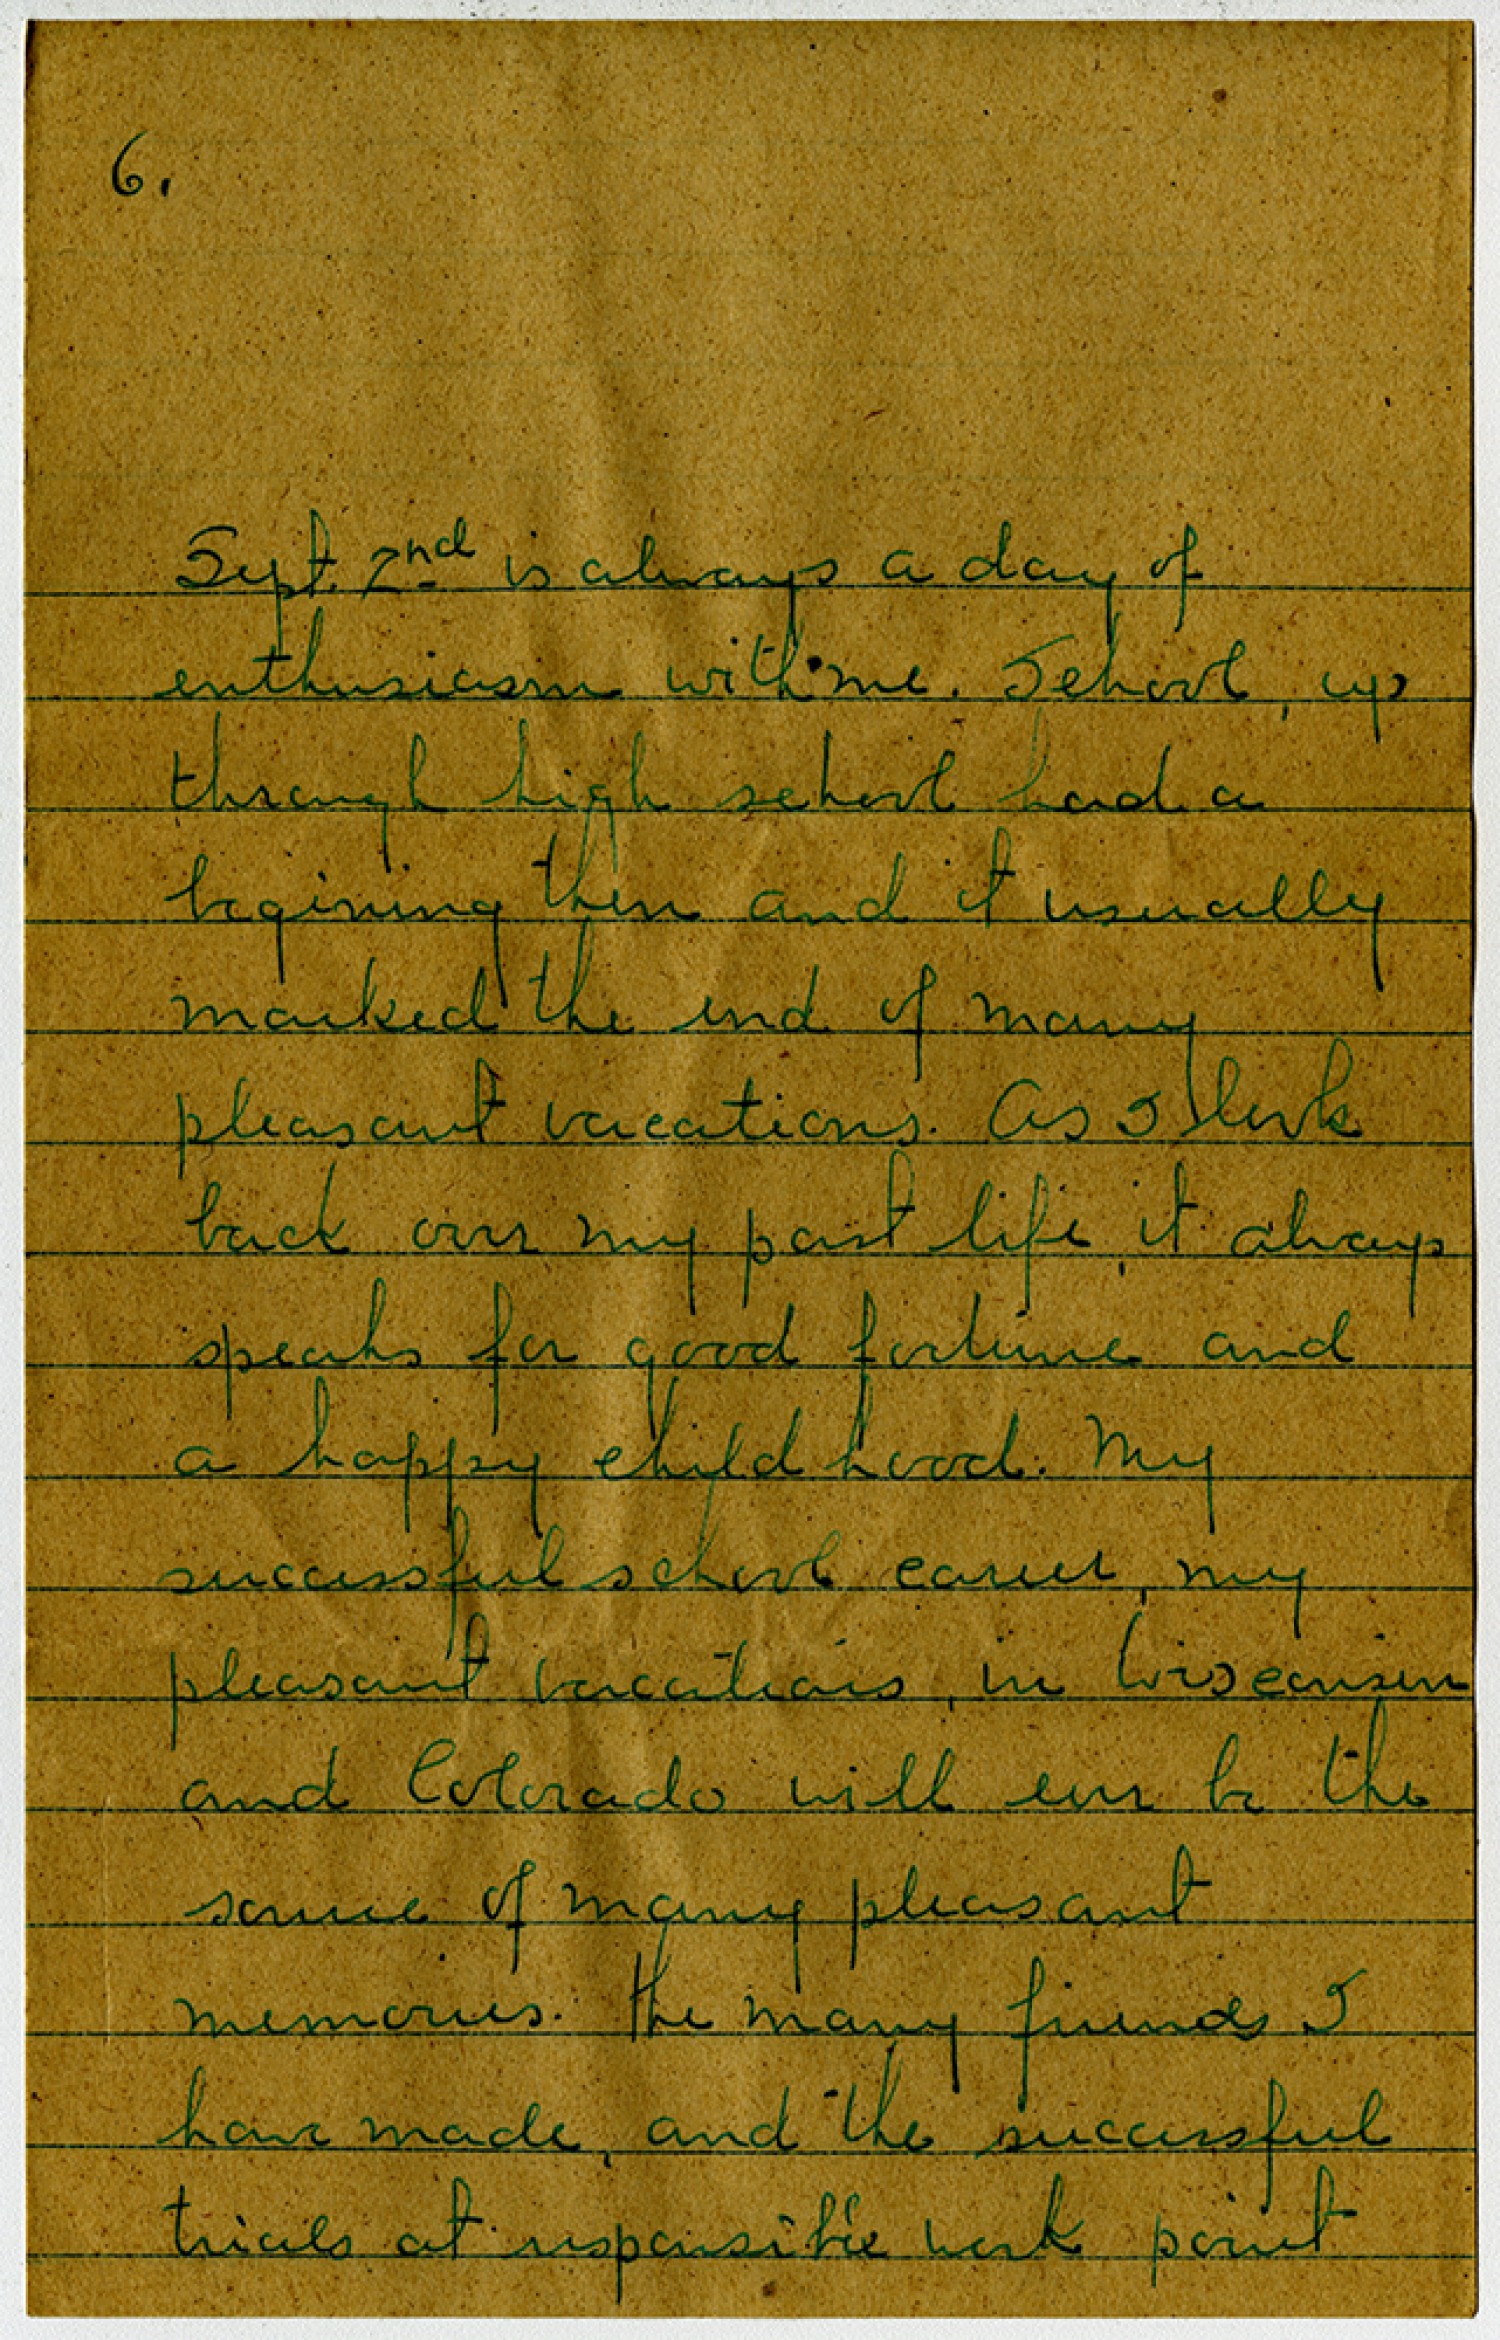 6.
Sept. 2nd is always a day of
enthusiasm with me. School, up
through high school had a
begining then and it usually
marked the end of many
pleasant vacations. As I look
back over my past life, it always
speaks for good fortune and
a happy childhood. My
successful school career, my
pleasant vacations, in Wisconsin
and Colorado will ever be the
source of many pleasant
memories. The many friends I
have made, and the successful
trials at responsible work point